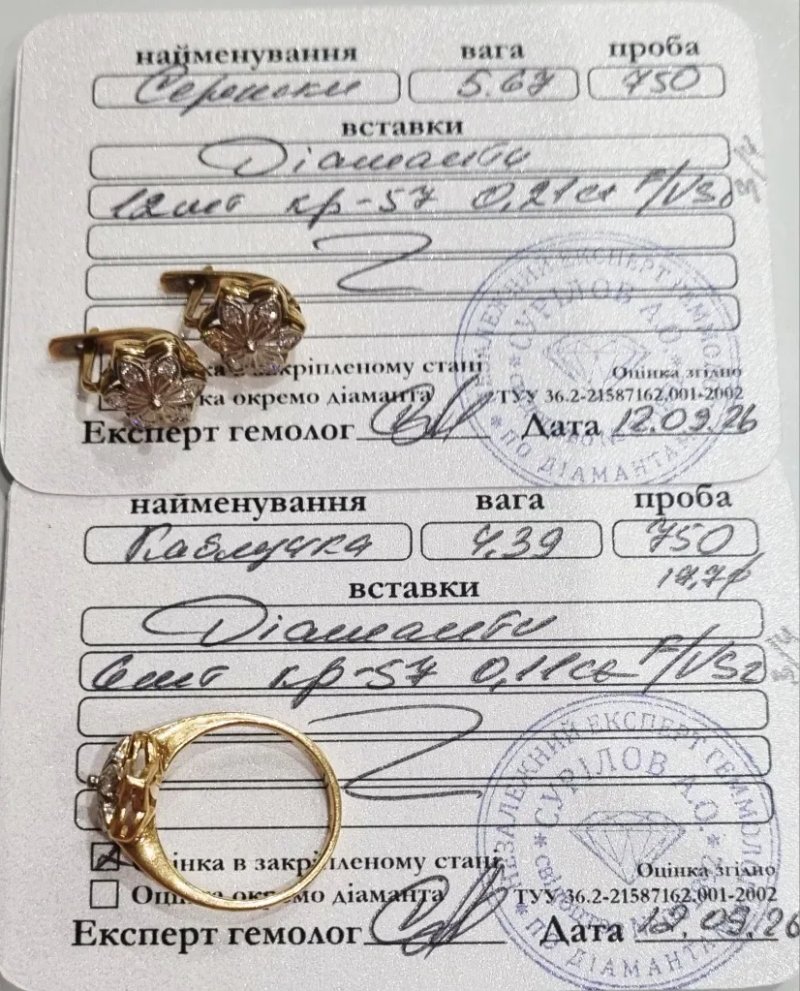 найменування вага проба
Сережки 5.67 750
вставки
Діаманти
12шт кр-57 0,21ct F/VS2
з/ч
ка в закріпленому стані
ка окремо діаманта
Оцінка згідно
ТУУ 36.2-21587162.001-2002
Експерт гемолог Дата 12.09.26
НЕЗАЛЕЖНИЙ ЕКСПЕРТ ГЕММОЛОГ
СУРІЛОВ А.О.
ПО ДІАМАНТАМ
найменування вага проба
Каблучка 4,39 750
17,7ф
вставки
Діаманти
6шт кр-57 0,11ct F/VS2
з/ч
інка в закріпленому стані
Оцінка окремо діаманта
Оцінка згідно
ТУУ 36.2-21587162.001-2002
Експерт гемолог Дата 12.09.26
НЕЗАЛЕЖНИЙ ЕКСПЕРТ ГЕММОЛОГ
СУРІЛОВ А.О.
ПО ДІАМАНТАМ